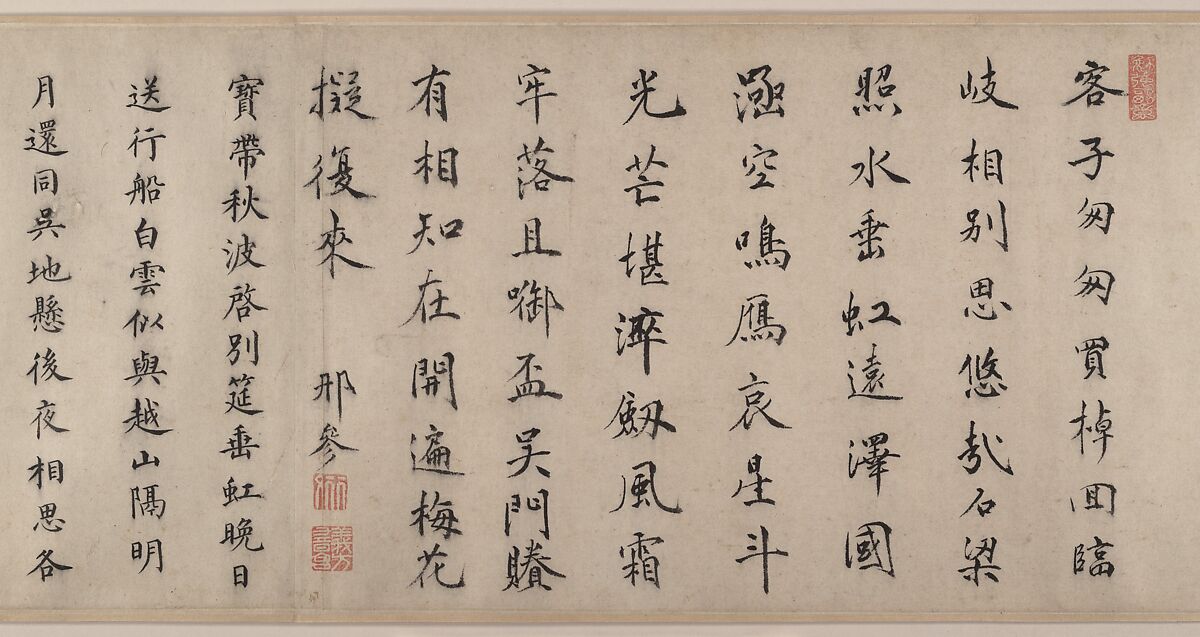 客子匆匆買棹回臨
岐相別思悠哉石梁
照水垂虹遠澤國
涵空鳴鴈哀星斗
光芒堪淬劔風霜
牢落且啣盃吴門賸
有相知在開遍梅花
擬復來　邢參
寶帶秋波啓別筵垂虹晚日
送行船白雲似與越山隔明
月還同吳地懸後夜相思各